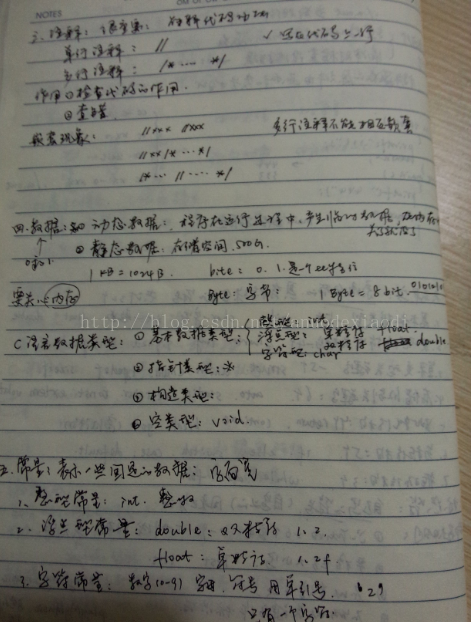 NOTES
三、注释: 解释代码功能
✓ 写在代码上一行
单行注释: //
多行注释: /* ... */
作用①检查代码的作用.
②查错
嵌套现象: //xxx //xxx 多行注释不能相互嵌套
//xx /* ... */
/* ... // ... */
四.数据: ① 动态数据: 程序在运行过程中,产生临时数据,
② 静态数据. 存储空间. 500G.
1 KB = 1024 B. bite: 0. 1.
Byte: 字节: 1 Byte = 8 bit. 010101
http://blog.csdn.net/
C语言数据类型: ①基本数据类型: 整型: int
浮点型: 单精度 float.
双精度 double
字符型 char
②指针类型: *
③构造类型:
④空类型: void.
五.常量: 表示一些固定的数据:
1、整型常量: int. 整数
2. 浮点型常量: double: 双精度 1.2
float: 单精度 1.2f
3. 字符常量: 数字(0-9) 字母. 符号 用单引号.
只有一个字符